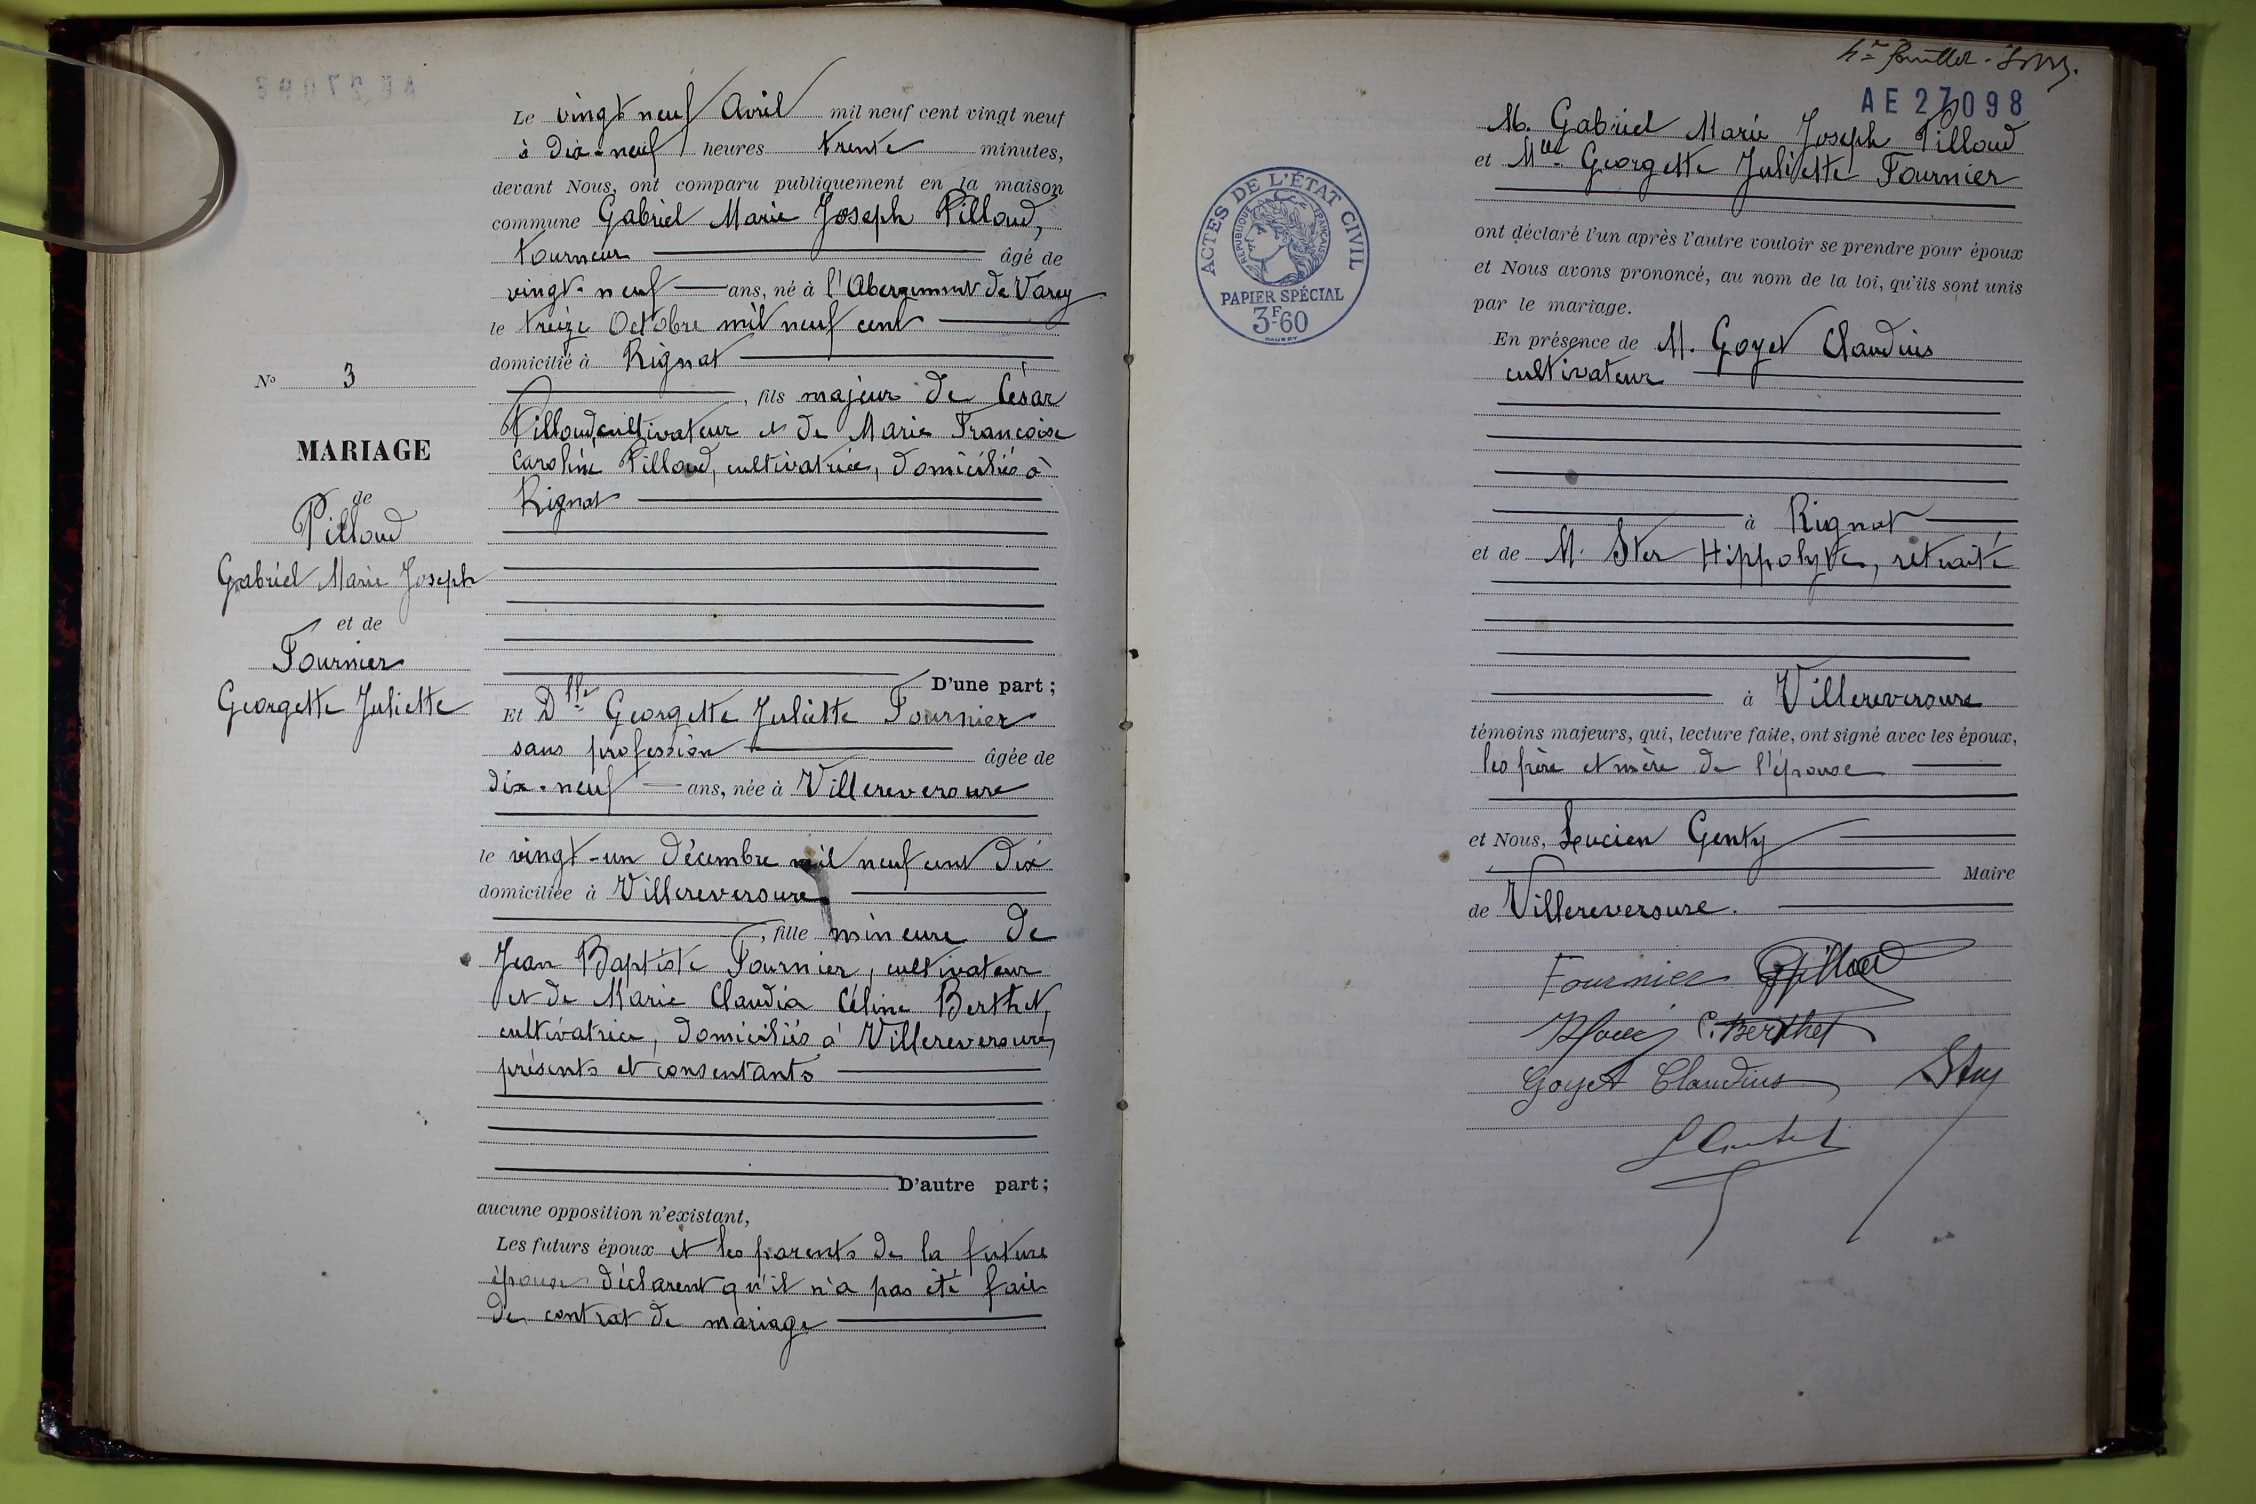 Le vingt neuf Avril mil neuf cent vingt neuf
à dix-neuf heures trente minutes,
devant Nous, ont comparu publiquement en la maison
commune Gabriel Marie Joseph Pilloud,
tourneur âgé de
vingt-neuf ans, né à l'Abergement de Varey
le treize Octobre mil neuf cent
domicilié à Rignat
, fils majeur de César
Pilloud, cultivateur et de Marie Françoise
Caroline Pilloud, cultivatrice, domiciliés à
Rignat
D'une part ;
N° 3
MARIAGE
de
Pilloud
Gabriel Marie Joseph
et de
Fournier
Georgette Juliette
Et Dlle Georgette Juliette Fournier
sans profession âgée de
dix-neuf ans, née à Villereversure
le vingt-un décembre mil neuf cent dix
domiciliée à Villereversure
, fille mineure de
Jean Baptiste Fournier, cultivateur
et de Marie Claudia Céline Berthet,
cultivatrice, domiciliés à Villereversure,
présents et consentants
D'autre part ;
aucune opposition n'existant,
Les futurs époux et les parents de la future
épouse déclarent qu'il n'a pas été fait
de contrat de mariage
AE 27098
M. Gabriel Marie Joseph Pilloud
et Mlle Georgette Juliette Fournier
ACTES DE L'ÉTAT CIVIL
RÉPUBLIQUE FRANÇAISE
PAPIER SPÉCIAL
3F60
ont déclaré l'un après l'autre vouloir se prendre pour époux
et Nous avons prononcé, au nom de la loi, qu'ils sont unis
par le mariage.
En présence de M. Goyet Claudius
cultivateur
à Rignat
et de M. Ster Hippolyte, retraité
à Villereversure
témoins majeurs, qui, lecture faite, ont signé avec les époux,
les père et mère de l'épouse
et Nous, Lucien Genty
Maire
de Villereversure.
Fournier GPilloud
C. Berthet
Goyet Claudius